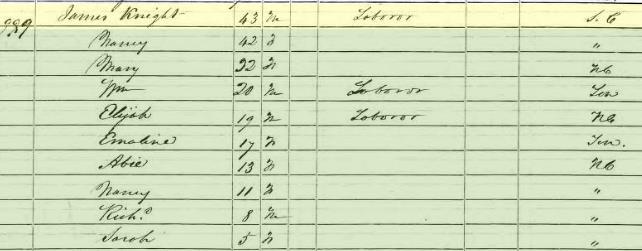 James Knight 43 M Laborer S. C
989 Nancy 42 F "
Mary 22 F NC
Wm 20 M Laborer Ten
Elijah 19 M Laborer NC
Emaline 17 F Ten.
Abie 13 F NC
Nancy 11 F "
Richd 8 M "
Sarah 5 F "